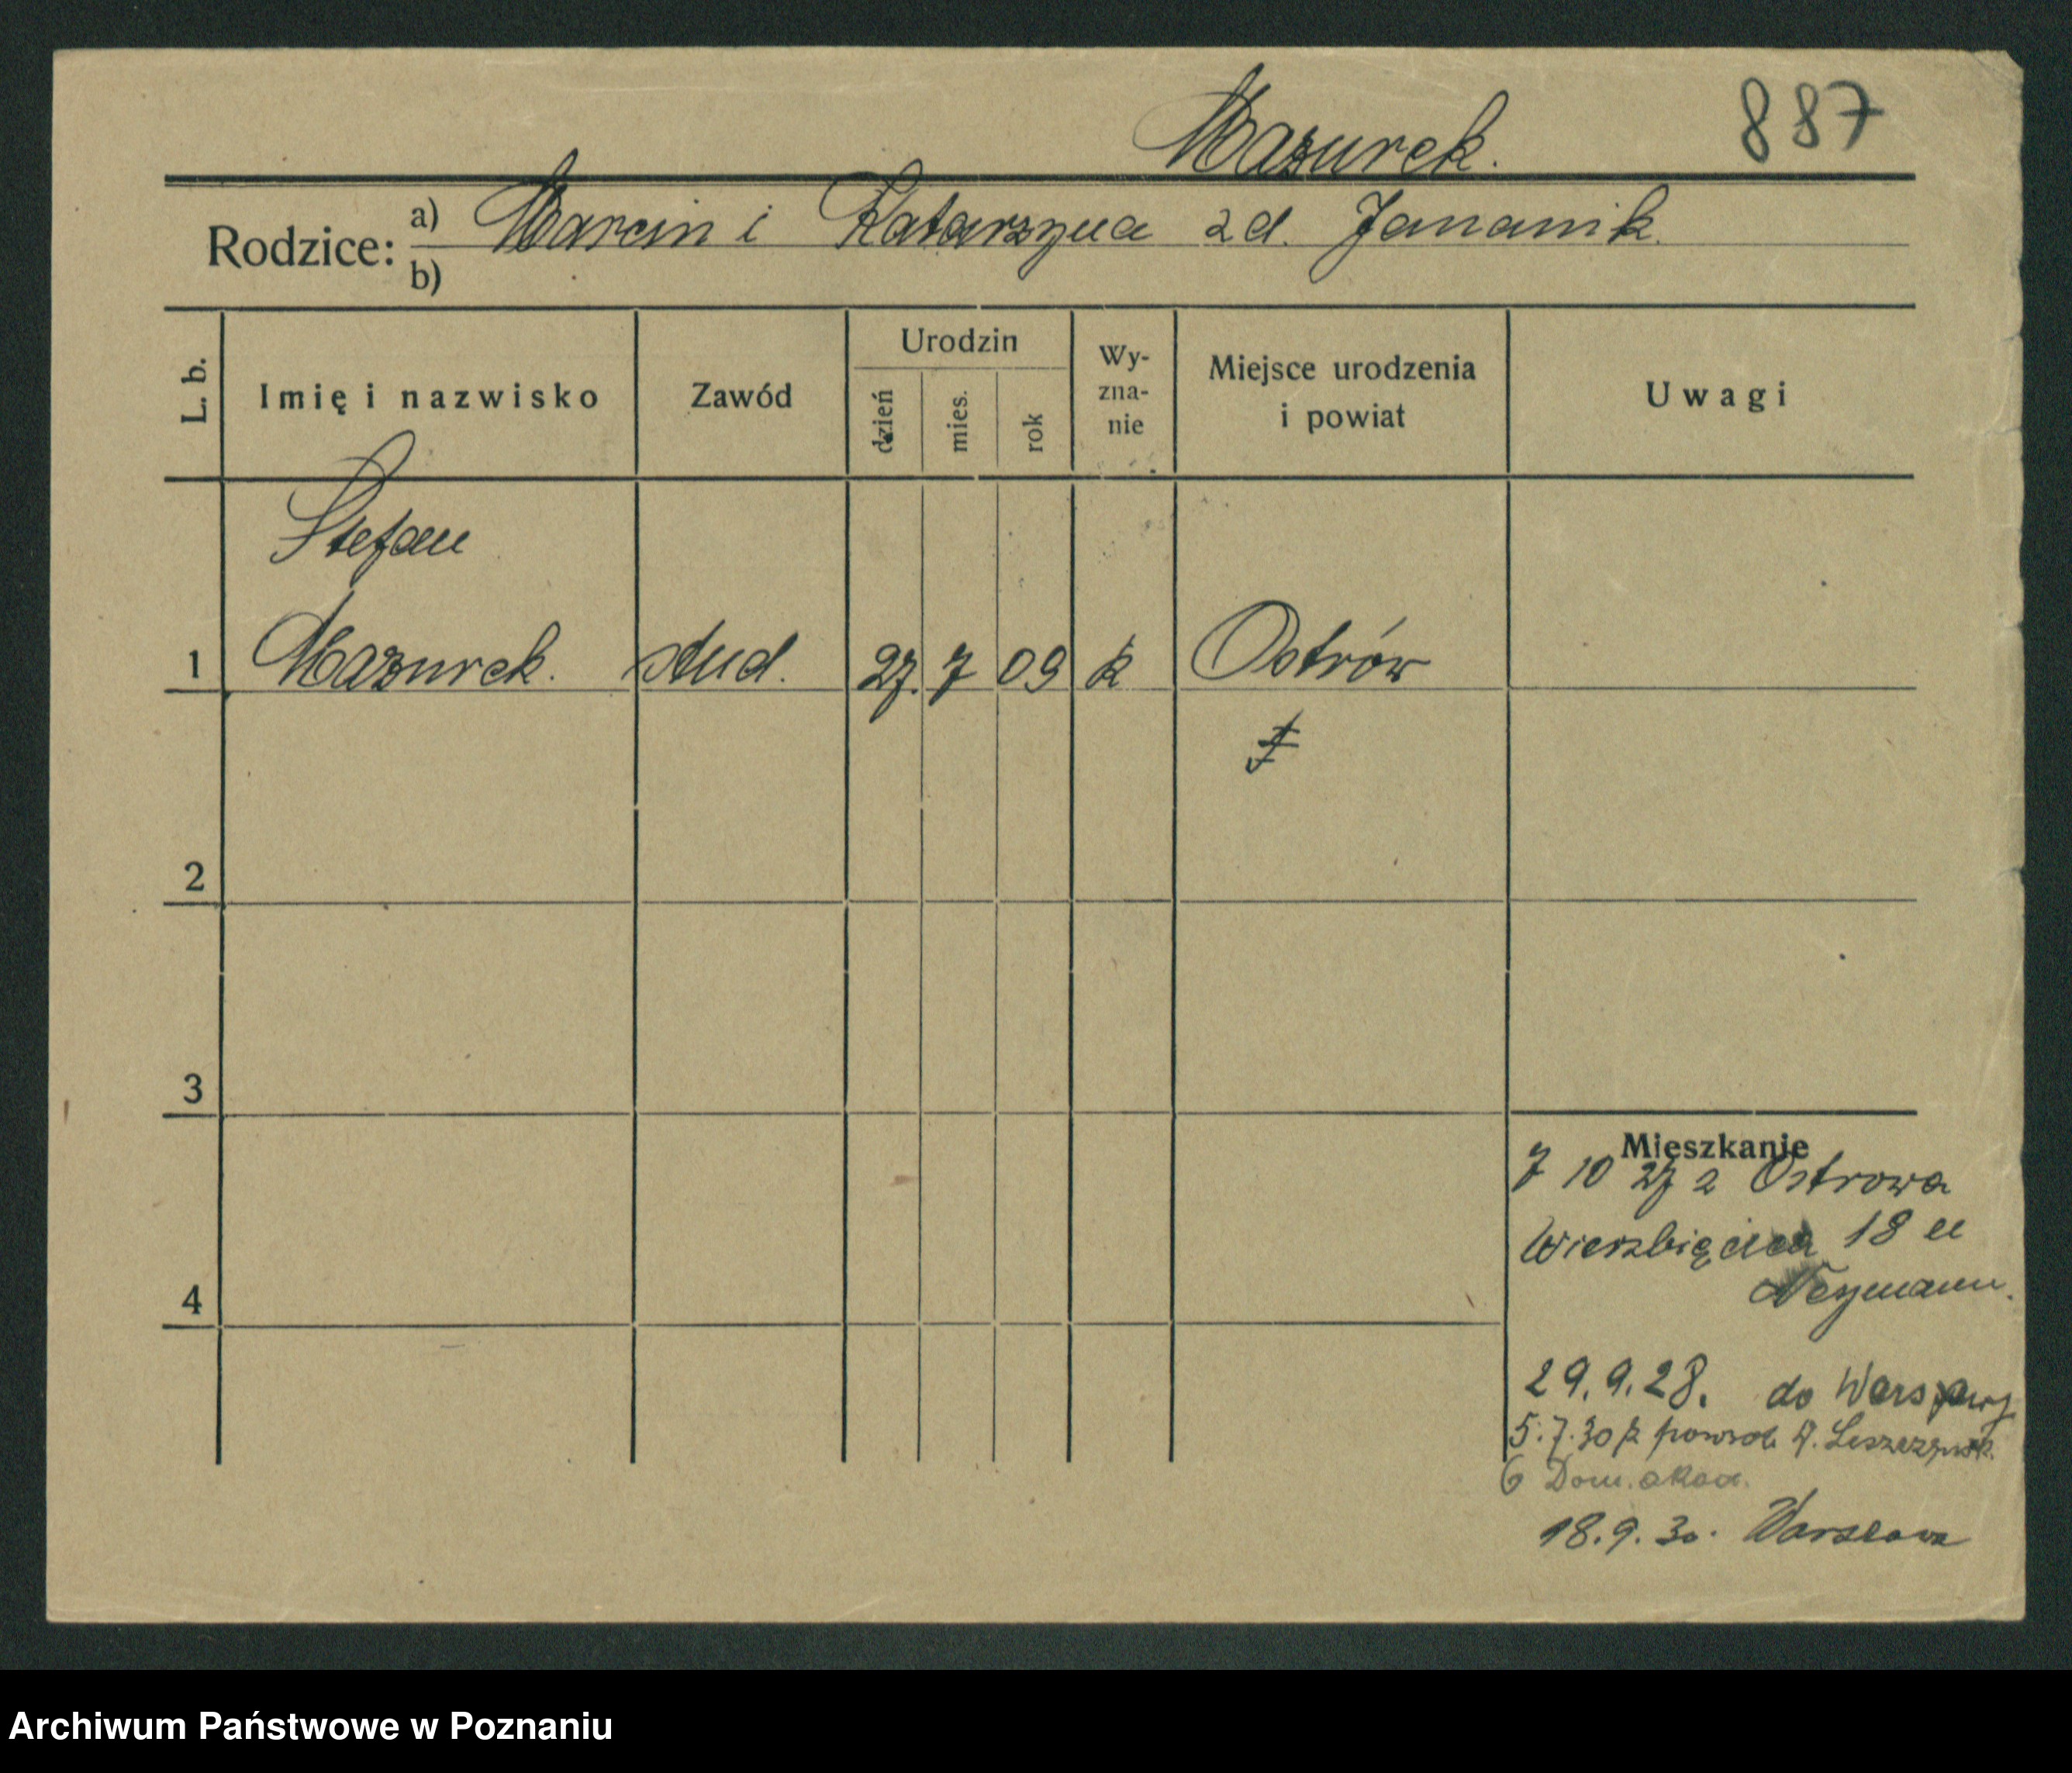 Mazurek.
887
Rodzice: a) Marcin i Katarzyna zd. Jananik.
b)
L. b.
Imię i nazwisko
Zawód
Urodzin
dzień
mies.
rok
Wy-
zna-
nie
Miejsce urodzenia
i powiat
Uwagi
Stefan
1 Mazurek. stud. 27. 7 09 k Ostrów
2
3
4
Mieszkanie
7 10 27 z Ostrowa
Wierzbięcice 18 u
Neymann.
29.9.28. do Warszawy
5.7.30 z powrot.
6 Dom. akad.
18.9.30. Warszawa
Archiwum Państwowe w Poznaniu